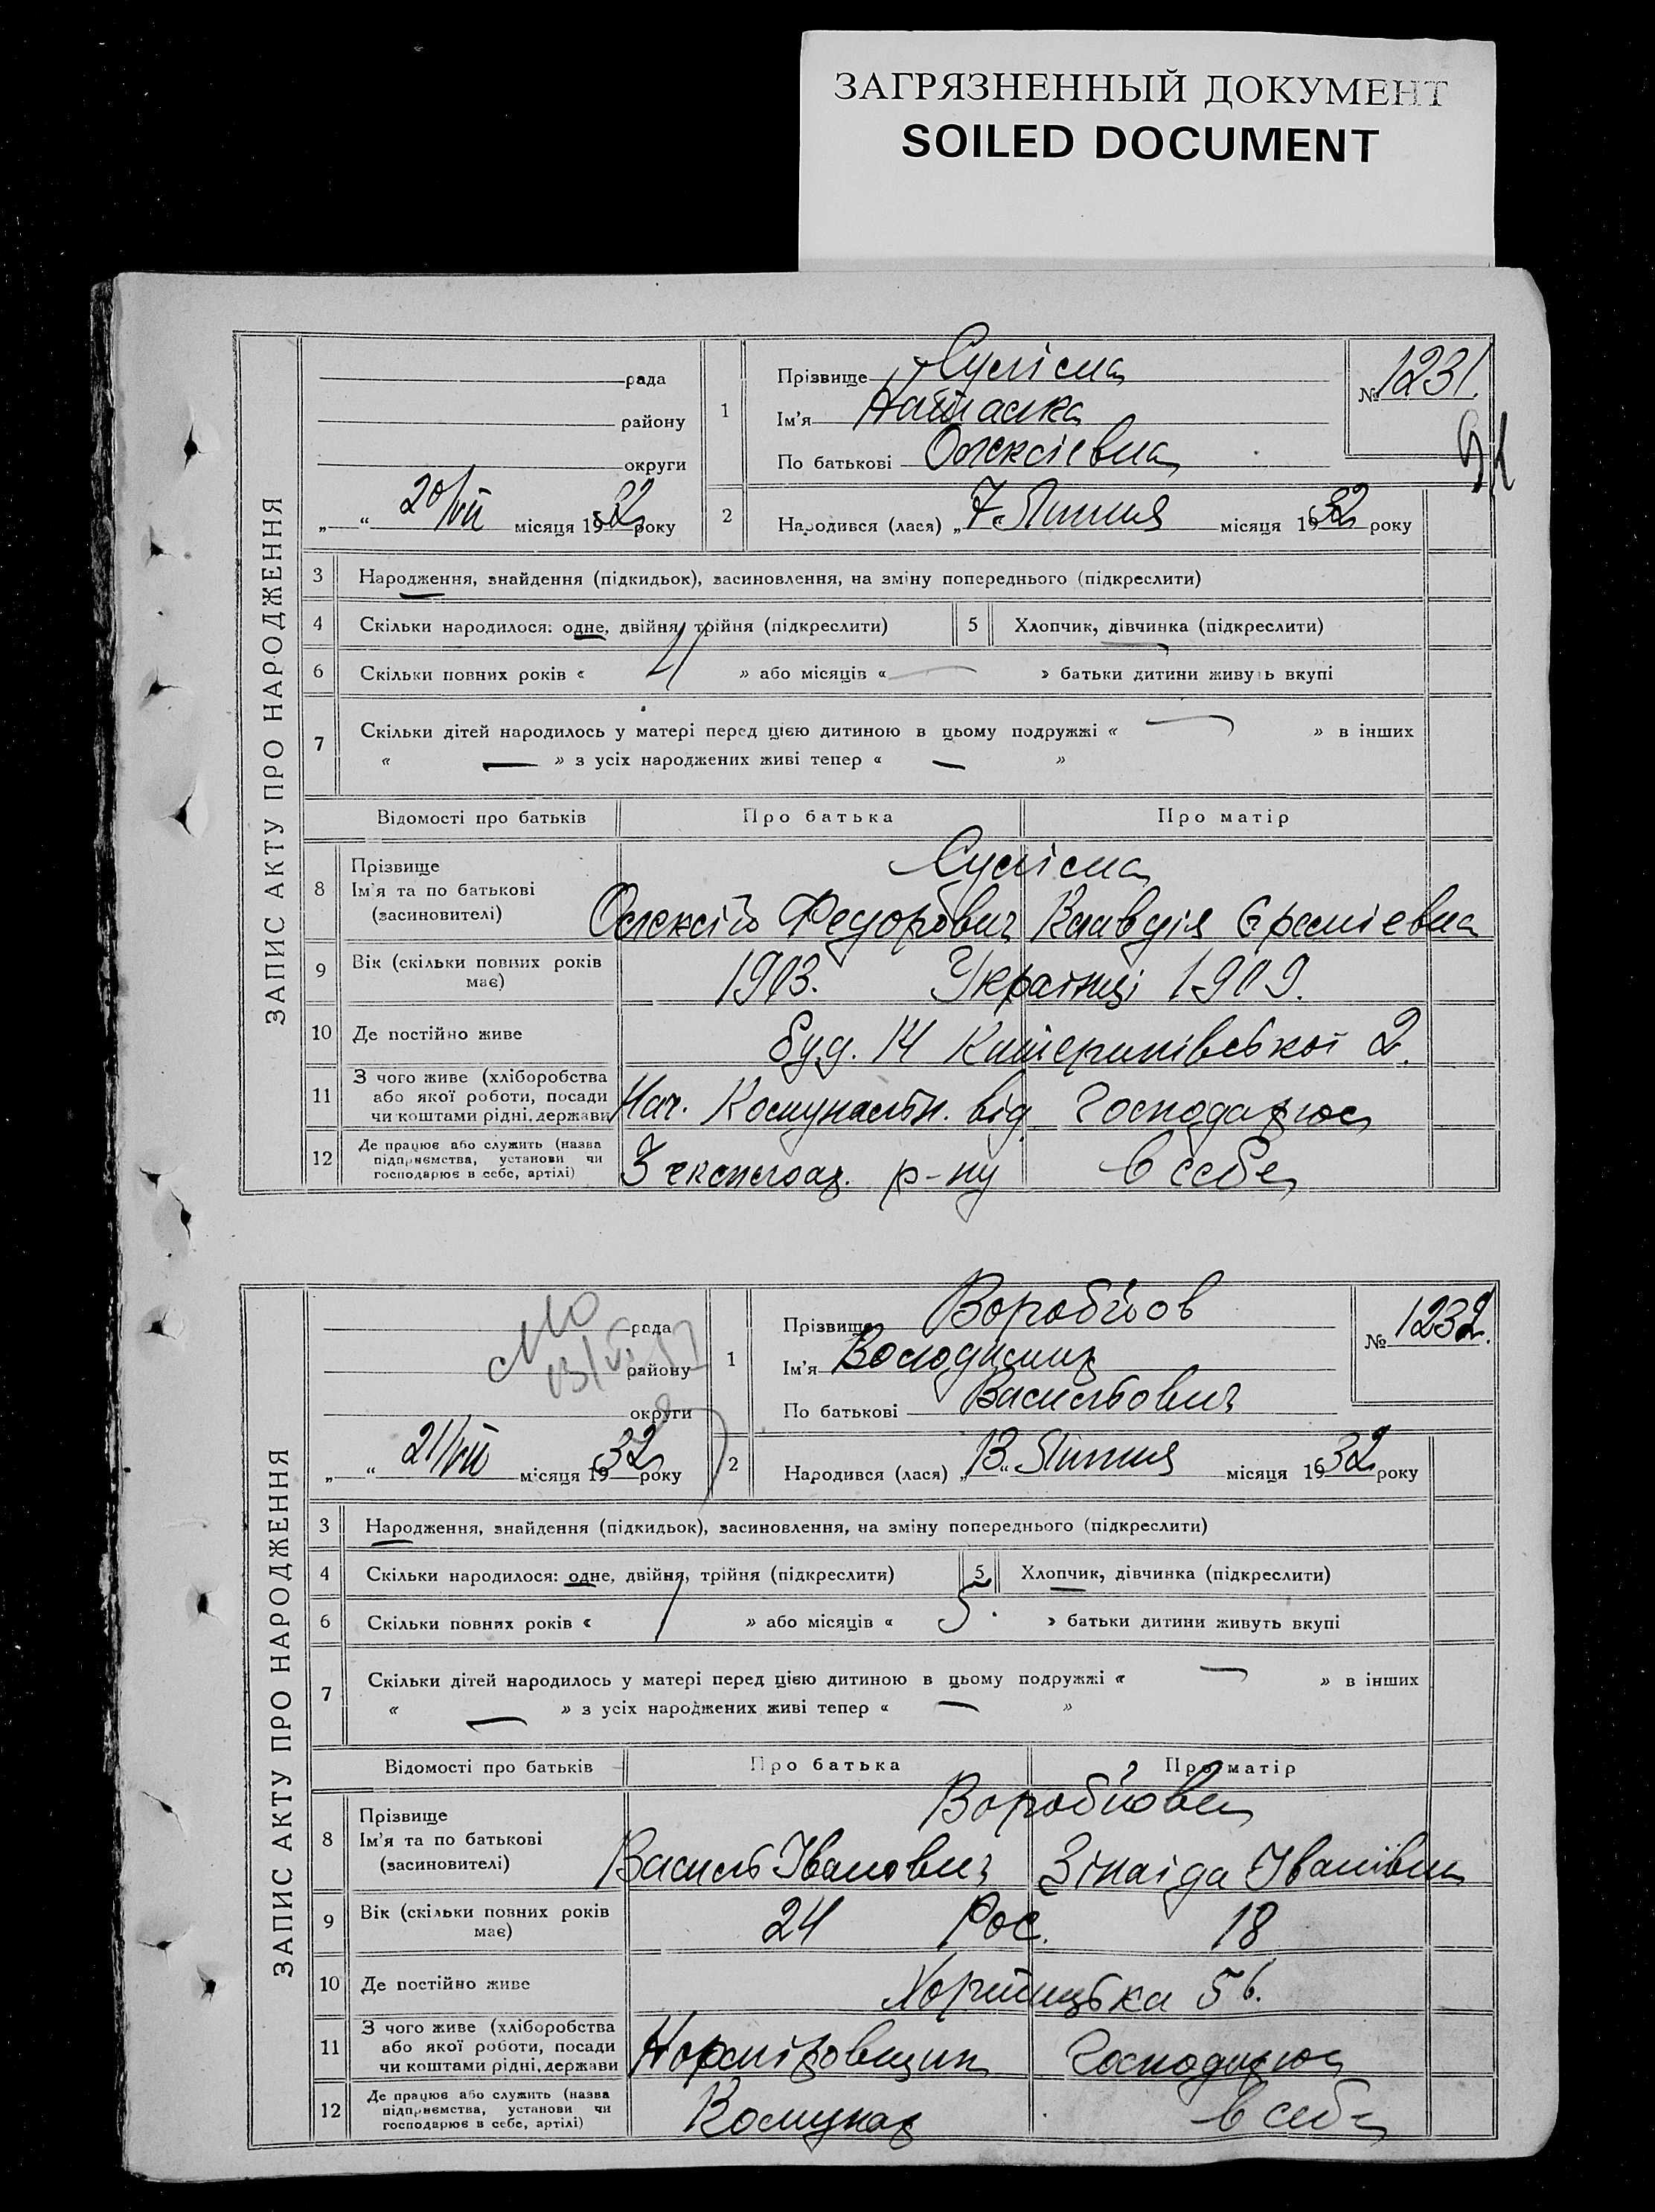 ЗАГРЯЗНЕННЫЙ ДОКУМЕНТ
SOILED DOCUMENT
ЗАПИС АКТУ ПРО НАРОДЖЕННЯ
рада
району
округи
„ “ 20/VII місяця 1932 року
1
Прізвище Суліма
Ім'я Наталка
По батькові Олексієвна
№ 1231.
2 Народився (лася) „7 Липня місяця 1932 року
3 Народження, знайдення (підкидьок), засиновлення, на зміну попереднього (підкреслити)
4 Скільки народилося: одне, двійня, трійня (підкреслити) 5 Хлопчик, дівчинка (підкреслити)
6 Скільки повних років « 4 » або місяців « — » батьки дитини живуть вкупі
7 Скільки дітей народилось у матері перед цією дитиною в цьому подружжі « — » в інших
« — » з усіх народжених живі тепер « — »
Відомості про батьків Про батька Про матір
8 Прізвище Суліма
Ім'я та по батькові
(засиновителі) Олексій Федорович Клавдія
9 Вік (скільки повних років має) 1903. Українці 1909.
10 Де постійно живе буд. 14 Катеринівської 2.
11 З чого живе (хліборобства
або якої роботи, посади
чи коштами рідні, держави Нач. Комунальн. від. Господарює
12 Де працює або служить (назва
підприємства, установи чи
господарює в себе, артілі) 3 експлоат. р-ну в себе
ЗАПИС АКТУ ПРО НАРОДЖЕННЯ
рада
району
округи
„ “ 21/VII місяця 1932 року
1
Прізвище Воробйов
Ім'я Володимир
По батькові Васильович
№ 1232.
2 Народився (лася) „13“ Липня місяця 1932 року
3 Народження, знайдення (підкидьок), засиновлення, на зміну попереднього (підкреслити)
4 Скільки народилося: одне, двійня, трійня (підкреслити) 5 Хлопчик, дівчинка (підкреслити)
6 Скільки повних років « 1 » або місяців « 5. » батьки дитини живуть вкупі
7 Скільки дітей народилось у матері перед цією дитиною в цьому подружжі « — » в інших
« — » з усіх народжених живі тепер « — »
Відомості про батьків Про батька Про матір
8 Прізвище Воробйови
Ім'я та по батькові
(засиновителі) Василь Іванович Зінаіда Іванівна
9 Вік (скільки повних років має) 24 Рос. 18
10 Де постійно живе Хортицька 56.
11 З чого живе (хліборобства
або якої роботи, посади
чи коштами рідні, держави Норміровщик Господарює
12 Де працює або служить (назва
підприємства, установи чи
господарює в себе, артілі) Комунар в себе